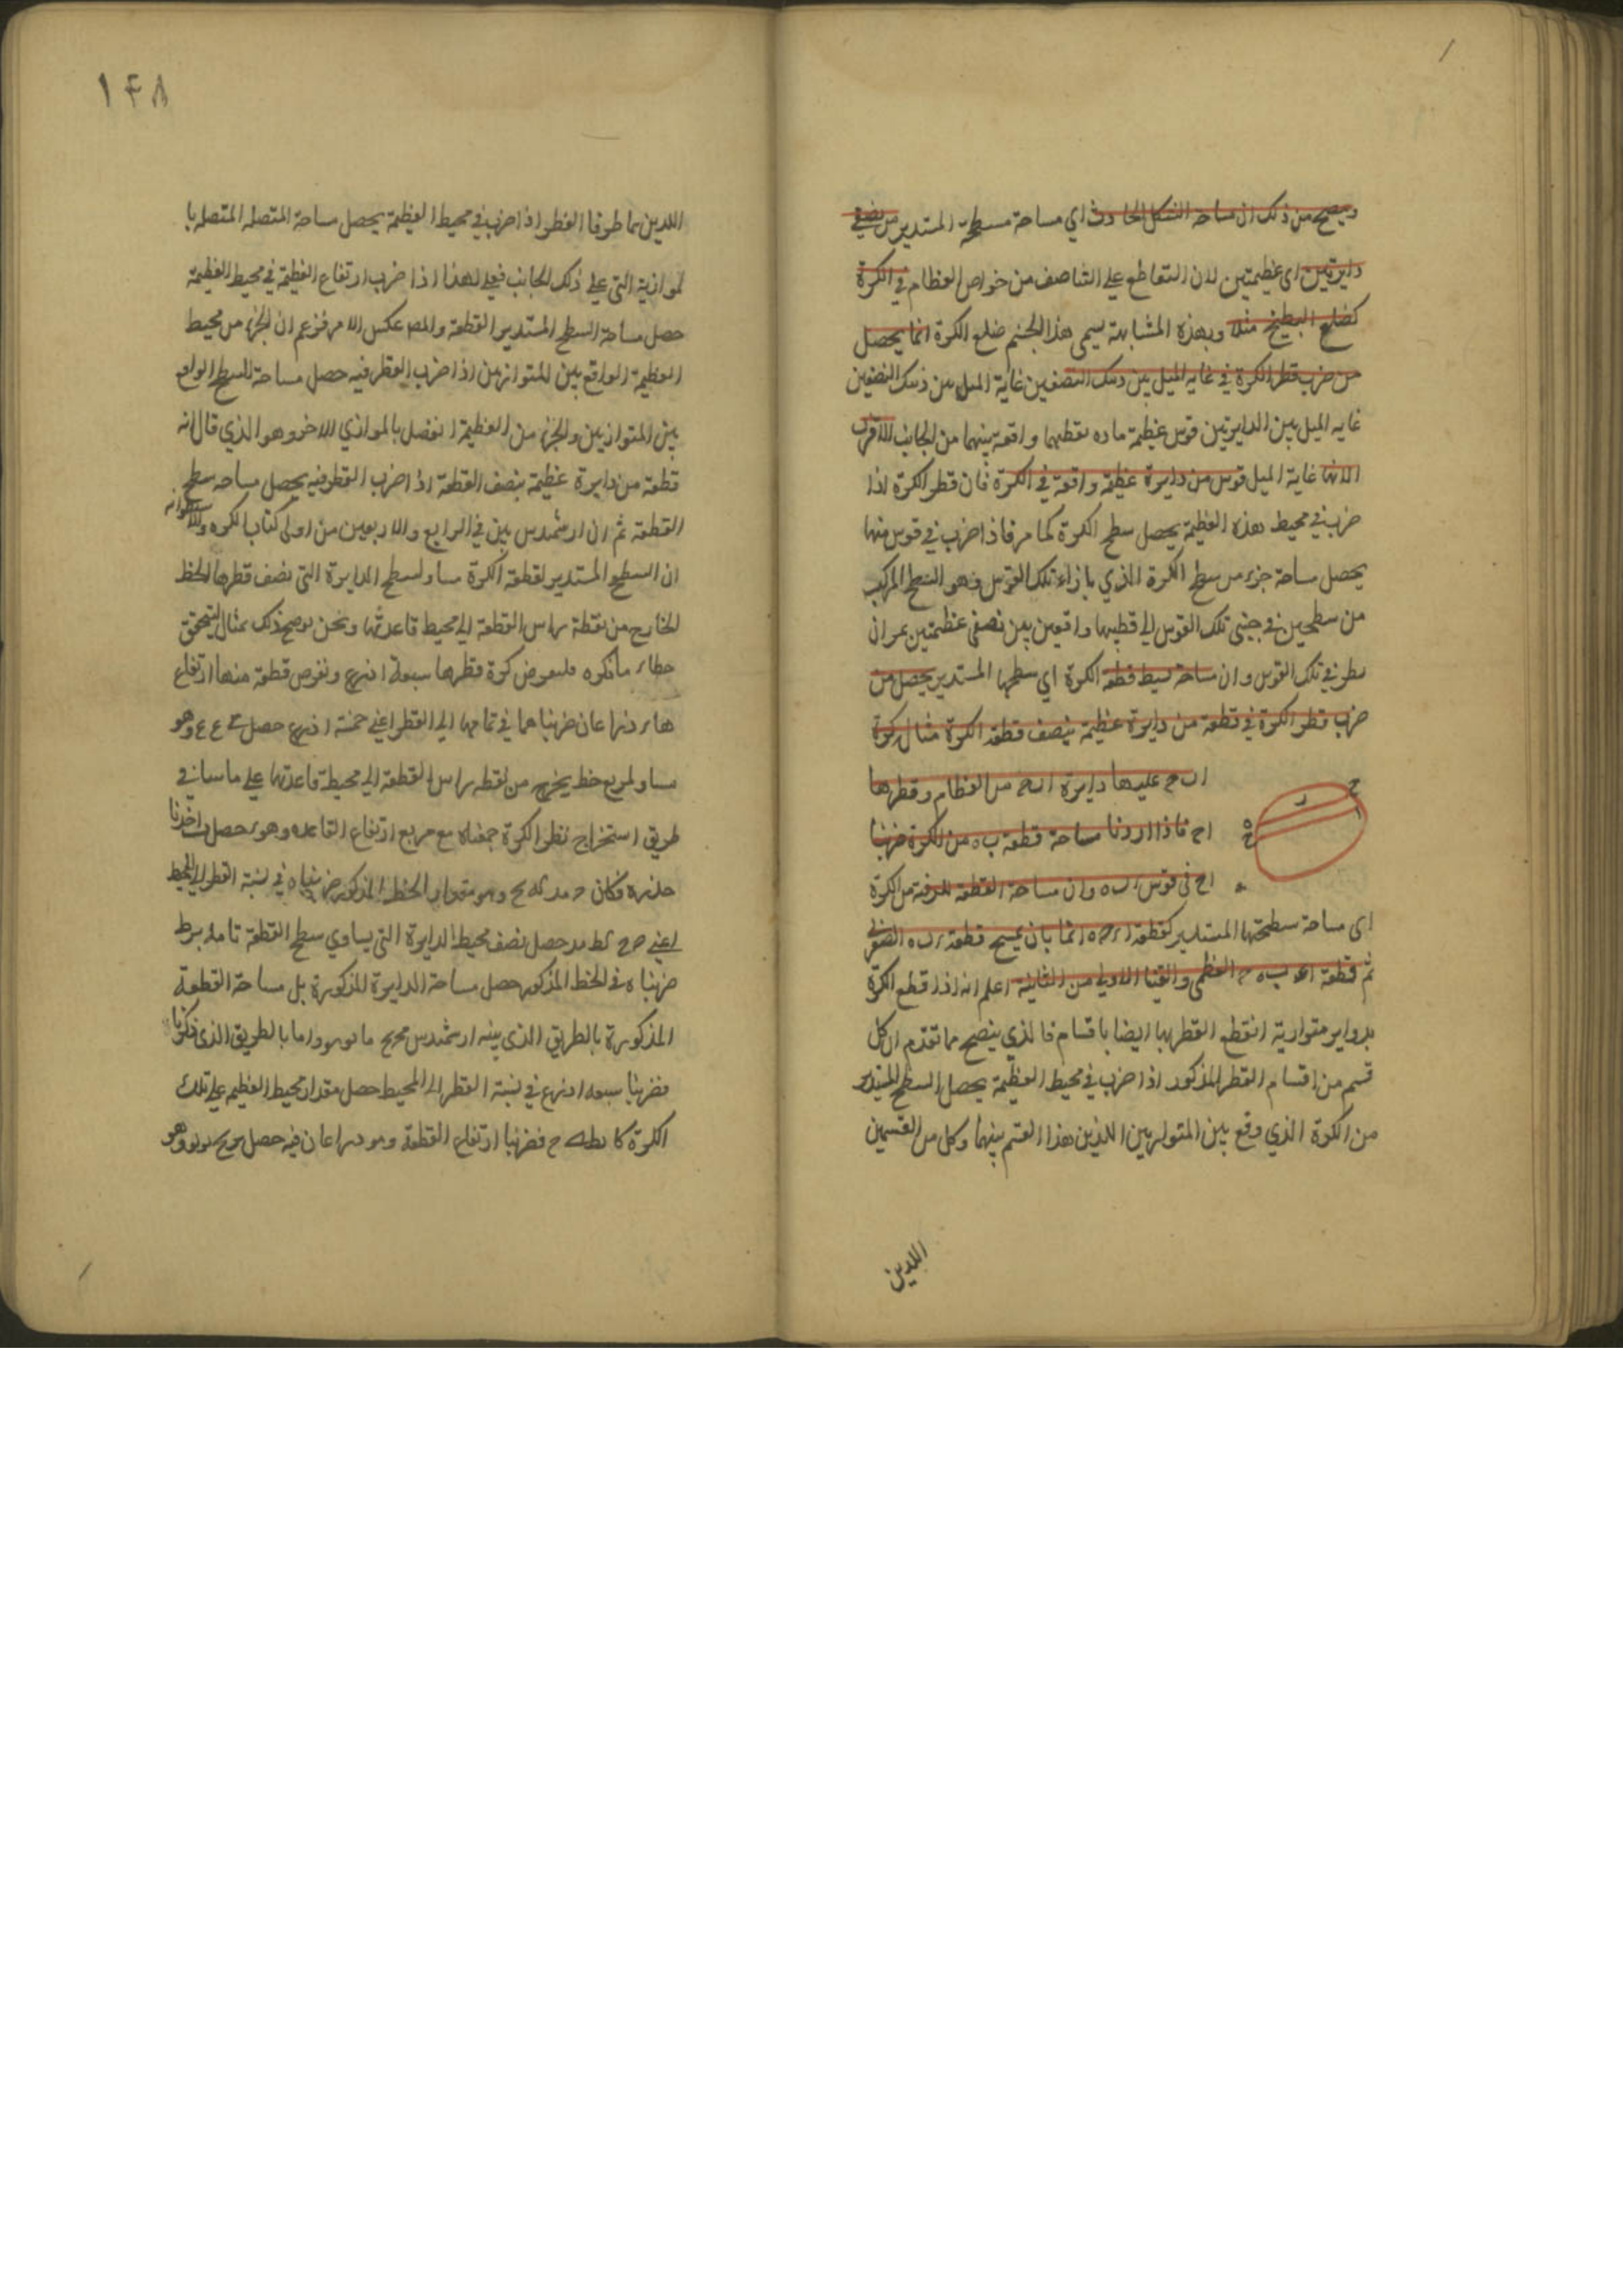 ويتضح من ذلك ان مساحة الشكل الحادث اي مساحة مسطحة المستدير من نصفي
دايرتين اي عظيمتين لان التقاطع علي التناصف من خواص العظام في الكرة
كضلع البطيخ مثلا وبهذه المشابهة يسمي هذا الجسم ضلع الكرة انما يحصل
من ضرب قطر الكرة في غاية الميل بين ذينك النصفين غاية الميل بين ذينك النصفين
غاية الميل بين الدايرتين قوس عظيمة مارة بقطبيهما واقعة بينهما من الجانب الاقرب
غاية الميل قوس من دايرة عظيمة واقعة في الكرة فان قطر الكرة اذا
ضرب في محيط هذه العظيمة يحصل سطح الكرة كما مر فاذا ضرب في قوس منها
يحصل مساحة جزء من سطح الكرة الذي بازاء تلك القوس وهو السطح المركب
من سطحين في جنبي تلك القوس الي قطبيها واقعين بين نصفي عظيمتين يمران
بطرفي تلك القوس وان مساحة بسيط قطعة الكرة اي سطحها المستدير يحصل من
ضرب قطر الكرة في قطعة من دايرة عظيمة ينصف قطعة الكرة مثال كرة
اب ح عليها دايرة اب ح من العظام وقطرها
ا ح فاذا اردنا مساحة قطعة ب ه من الكرة ضربنا
ا ح في قوس ا ب ه وان مساحة القطعة من الكرة
اي مساحة سطحها المستدير كقطعة انما بان يمسح قطعة الصغري
ثم قطعة العظمي والقينا الاولي من الثانية اعلم انه اذا قطع الكرة
بدواير متوازية انقطع القطر بها ايضا باقسام فالذي يتضح مما تقدم ان كل
قسم من اقسام القطر المذكور اذا ضرب في محيط العظيمة يحصل السطح المستدير
من الكرة الذي وقع بين المتوازيين اللذين هذا القسم بينهما وكل من القسمين
اللذين
١٤٨
اللذين هما طرفا القطر اذا ضرب في محيط العظيمة يحصل مساحة المتصلة المتصلة با
لموازية التي علي ذلك الجانب فعلي هذا اذا ضرب ارتفاع القطعة في محيط العظيمة
حصل مساحة السطح المستدير القطعة والمص عكس الامر فزعم ان الجزء من محيط
العظيمة الواقع بين المتوازيين اذا ضرب القطر فيه حصل مساحة السطح الواقع
بين المتوازيين والجزء من العظيمة انفصل بالموازي الاخر وهو الذي قال انه
قطعة من دايرة عظيمة ينصف القطعة اذا ضرب القطر فيه يحصل مساحة سطح
القطعة ثم ان ارشميدس بين في الرابع والاربعين من اولي كتاب الكره والاسطوانه
ان السطح المستدير لقطعة الكرة مساو لسطح الدايرة التي نصف قطرها الخط
الخارج من نقطة راس القطعة الي محيط قاعدتها ونحن نوضح ذلك بمثال ليتحقق
خطاء ما ذكره فلنفرض كرة قطرها سبعة اذرع ونفرض قطعة منها ارتفاع
ها ذراعان ضربناهما في تمامهما الي القطر اعني خمسة اذرع حصل وهو
مساو لمربع خط يخرج من نقطة راس القطعة الي محيط قاعدتها علي ما سياتي في
طريق استخراج قطر الكرة جمعناه مع مربع ارتفاع القاعدة وهو حصل اخذنا
جذره فكان وهو مقدار الخط المذكور ضربناه في نسبة القطر الي المحيط
اعني حصل نصف محيط الدايرة التي يساوي سطح القطعة
ضربناه في الخط المذكور حصل مساحة الدايرة المذكورة بل مساحة القطعة
المذكورة بالطريق الذي بينه ارشميدس واما بالطريق الذي ذكرنا
فضربنا سبعة اذرع في نسبة القطر الي المحيط حصل مقدار محيط العظيم علي تلك
الكرة فضربنا ارتفاع القطعة وهو ذراعان فيه حصل وهو